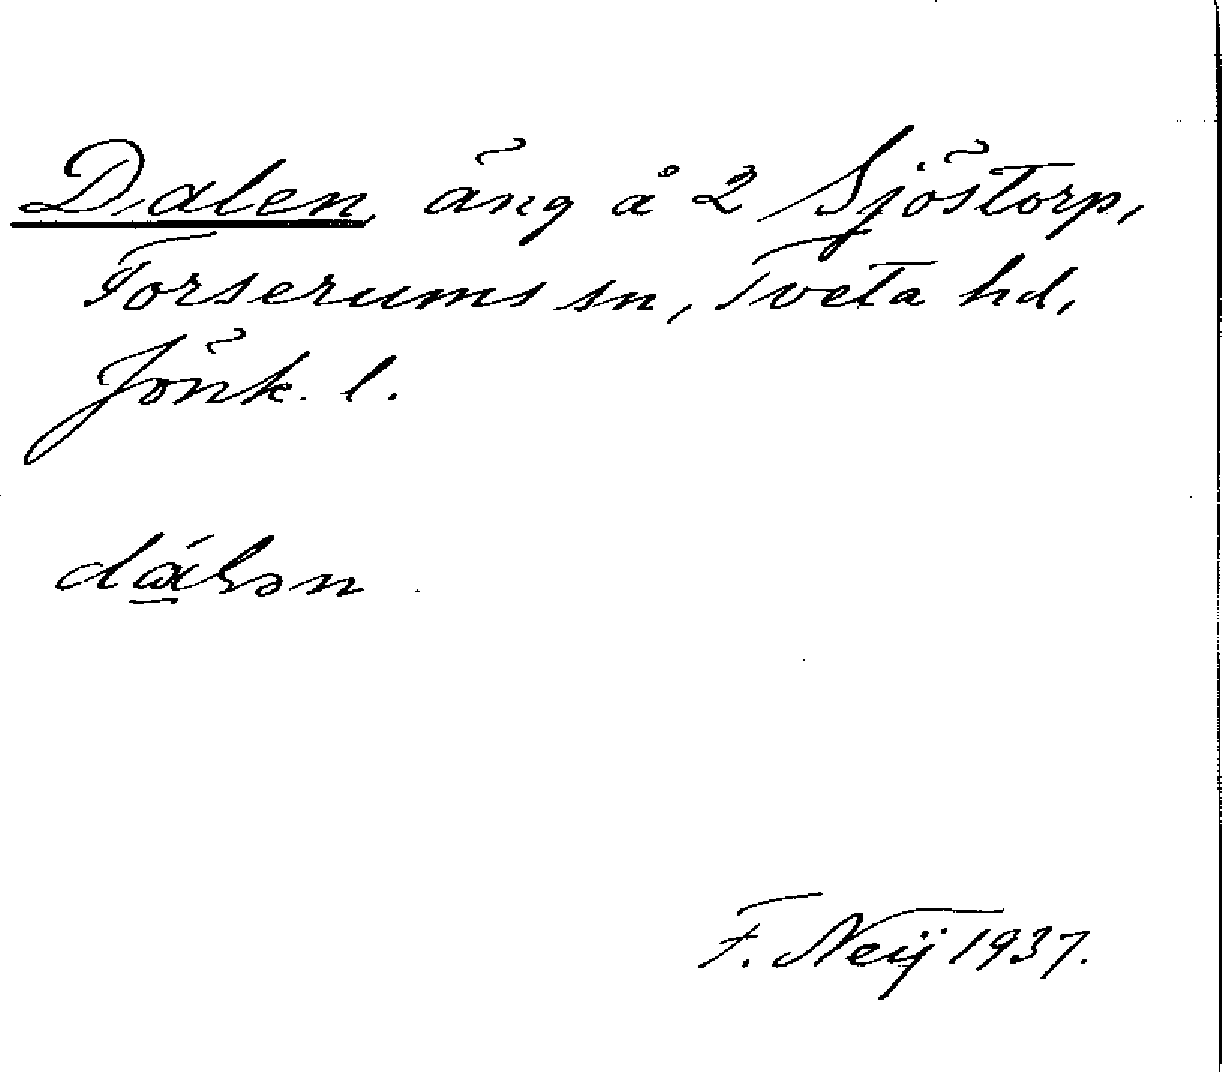 Dalen, äng å 2 Sjöstorp,
Forserums sn, Tveta hd,
Jönk. l.
F. Neij 1937.